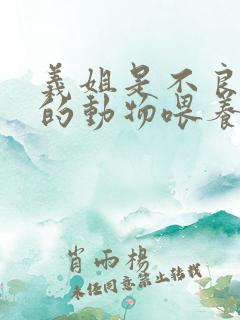 義姐是不良
的動物喂养
肖雨楊
未經同意禁止轉載